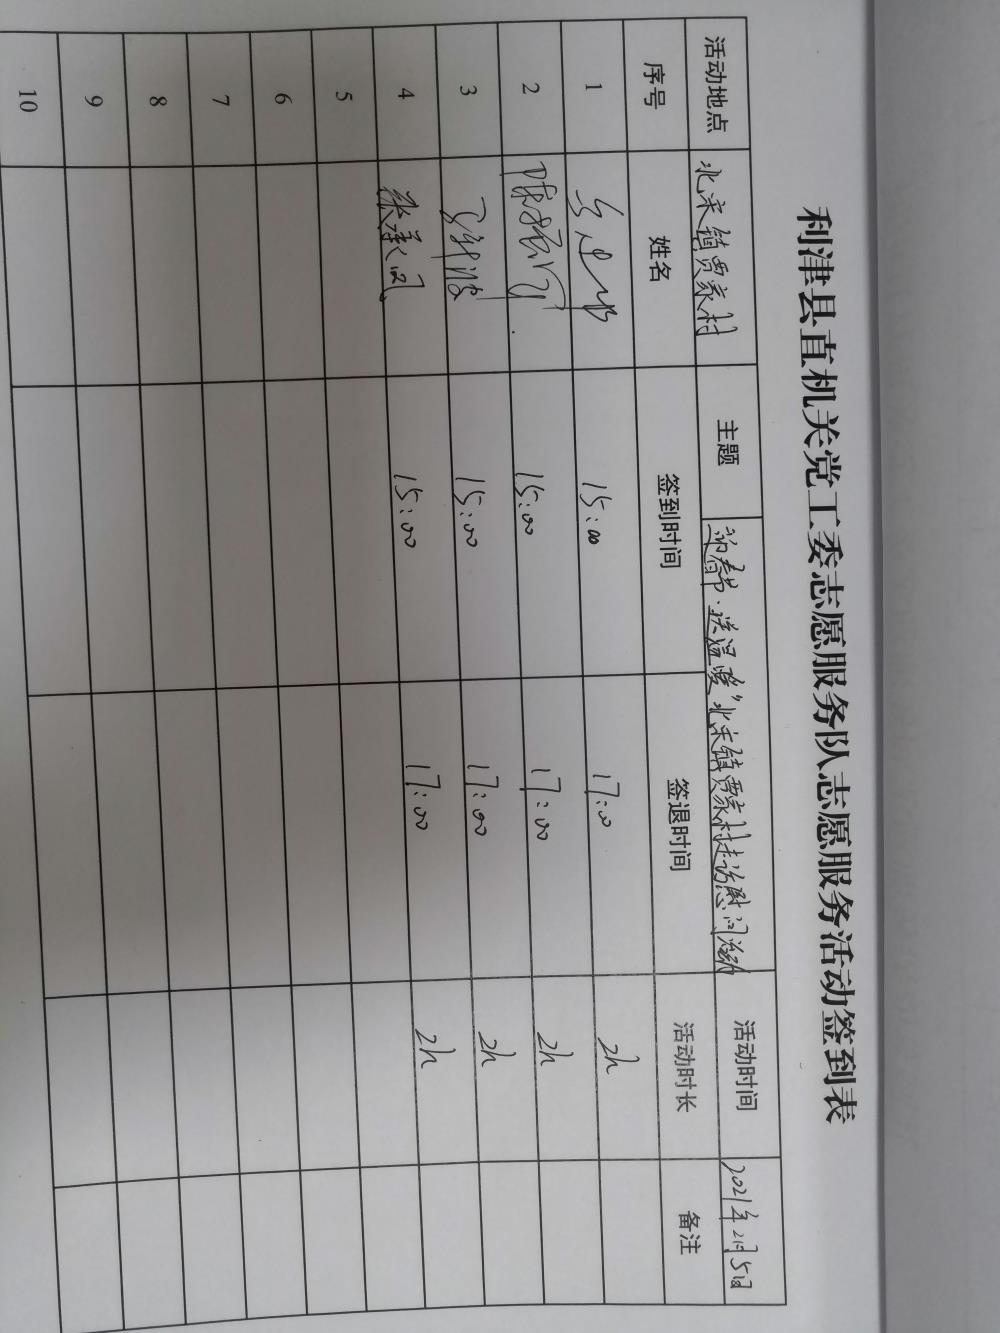 利津县直机关党工委志愿服务队志愿服务活动签到表
活动地点 北宋镇贾家村 主题 迎春节·送温暖”北宋镇贾家村走访慰问活动 活动时间 2021年2月5日
序号 姓名 签到时间 签退时间 活动时长 备注
1 15:00 17:00 2h
2 15:00 17:00 2h
3 15:00 17:00 2h
4 张义凤 15:00 17:00 2h
5
6
7
8
9
10